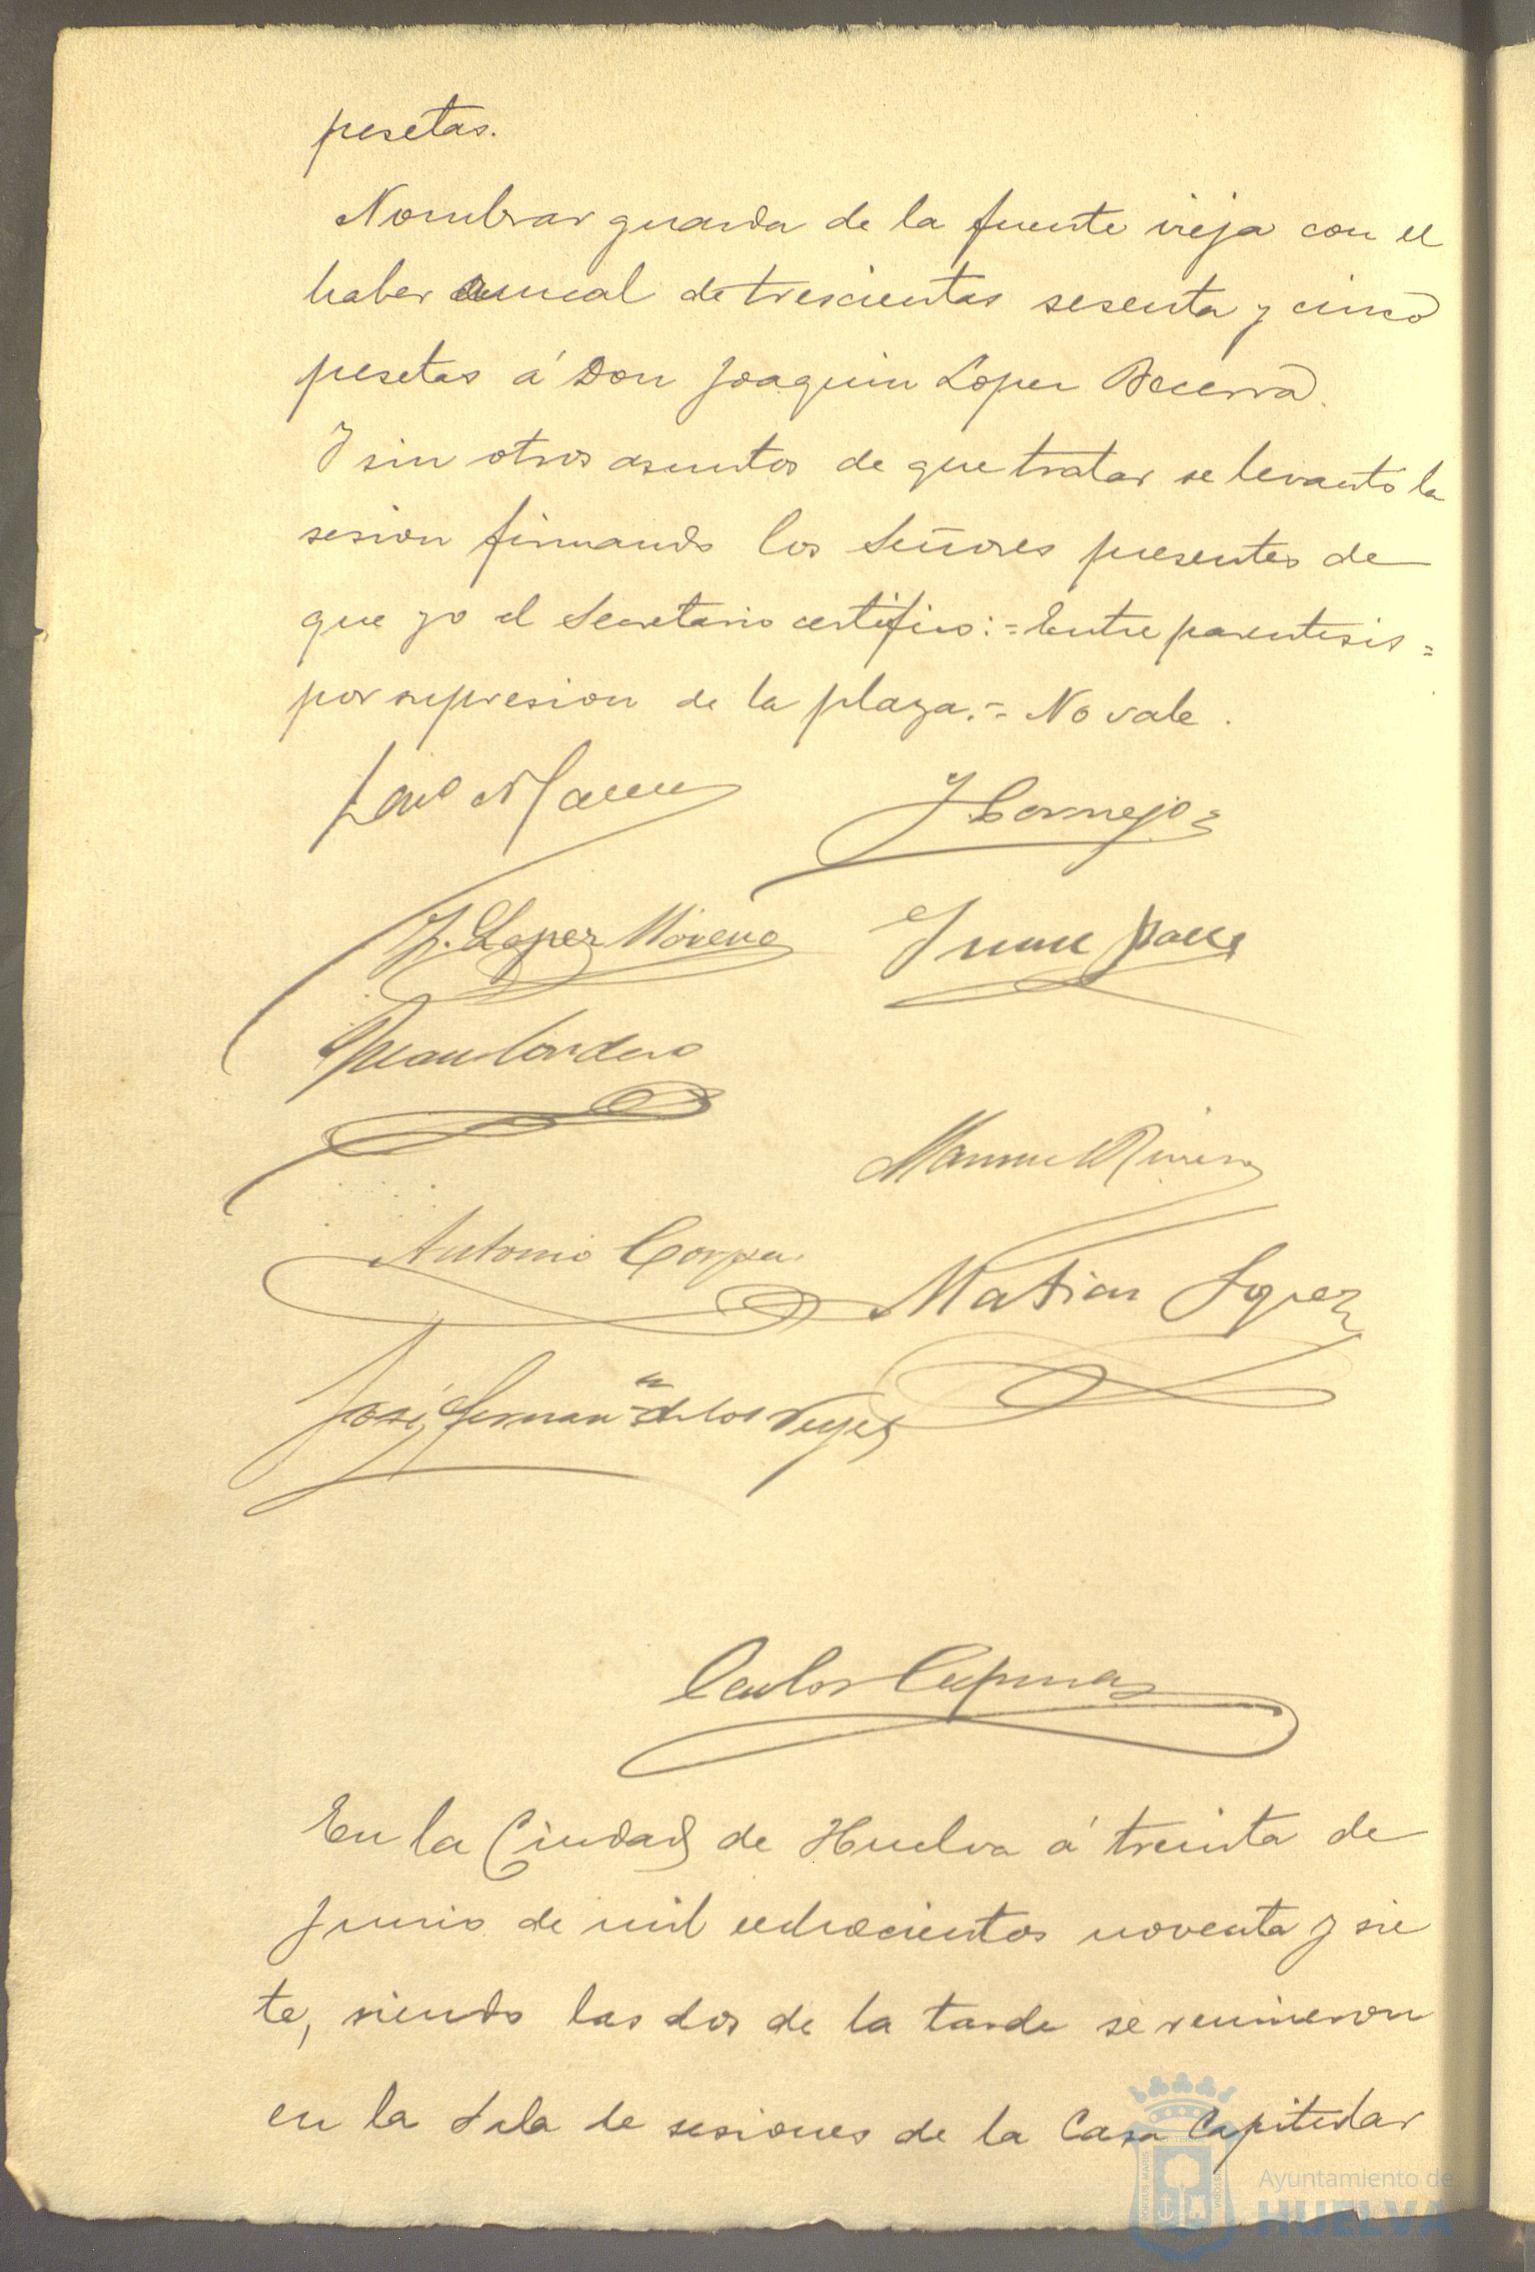 pesetas.
Nombrar guarda de la fuente vieja con el
haber anual de trescientas sesenta y cinco
pesetas á Don Joaquin Lopez Becerra.
Y sin otros asuntos de que tratar se levantó la
sesion firmando los Señores presentes de
que yo el Secretario certifico:=Entre parentesis=
por supresion de la plaza.=No vale.
J. Cornejo
J. Lopez Moreno
Juan Cordero
Manuel Rivero
Antonio Corpa
Matias Lopez
José Fernan dez de los Reyes
Carlos
En la Ciudad de Huelva á treinta de
Junio de mil ochocientos noventa y sie
te, siendo las dos de la tarde se reunieron
en la Sala de sesiones de la Casa Capitular
Ayuntamiento de
HUELVA